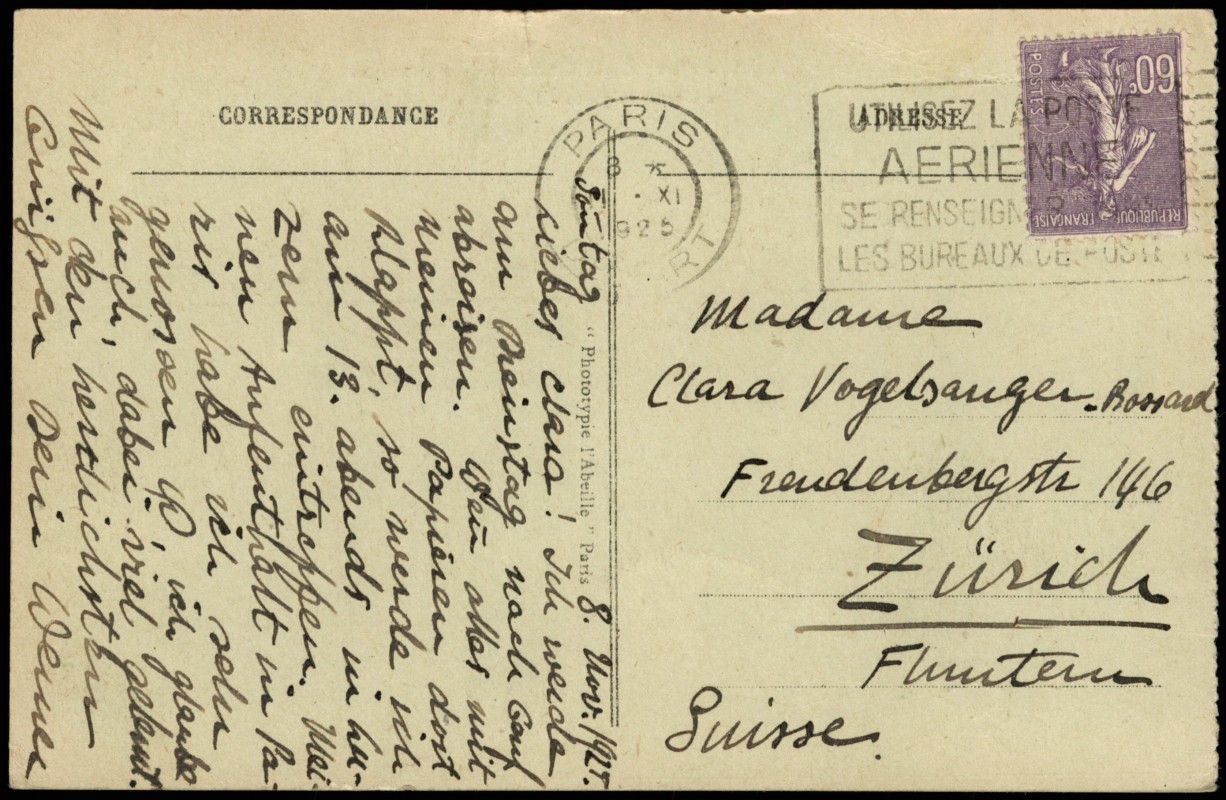 CORRESPONDANCE
ADRESSE
PARIS
8 *
XI
1925
RT
UTILISEZ LA POSTE
AERIENNE
SE RENSEIGNER
LES BUREAUX DE POSTE
60c
POSTES
REPUBLIQUE FRANÇAISE
Sontag 8. Nov. 1925.
Liebes Clara! Ich werde
am Dienstag nach
abreisen. Wen alles mit
meinen Papieren dort
klappt, so werde ich
am 13. abends in Lu-
zern eintreffen. Mei-
nen Aufenthalt in Pa-
ris habe ich sehr
genossen & ich glaube
auch, dabei viel gelernt.
Mit den herzlichsten
Grüssen Dein Werner
"Photoypie l'Abeille" Paris
Madame
Clara Vogelsanger-Bossard
Freudenbergstr 146
Zürich
Fluntern
Suisse.